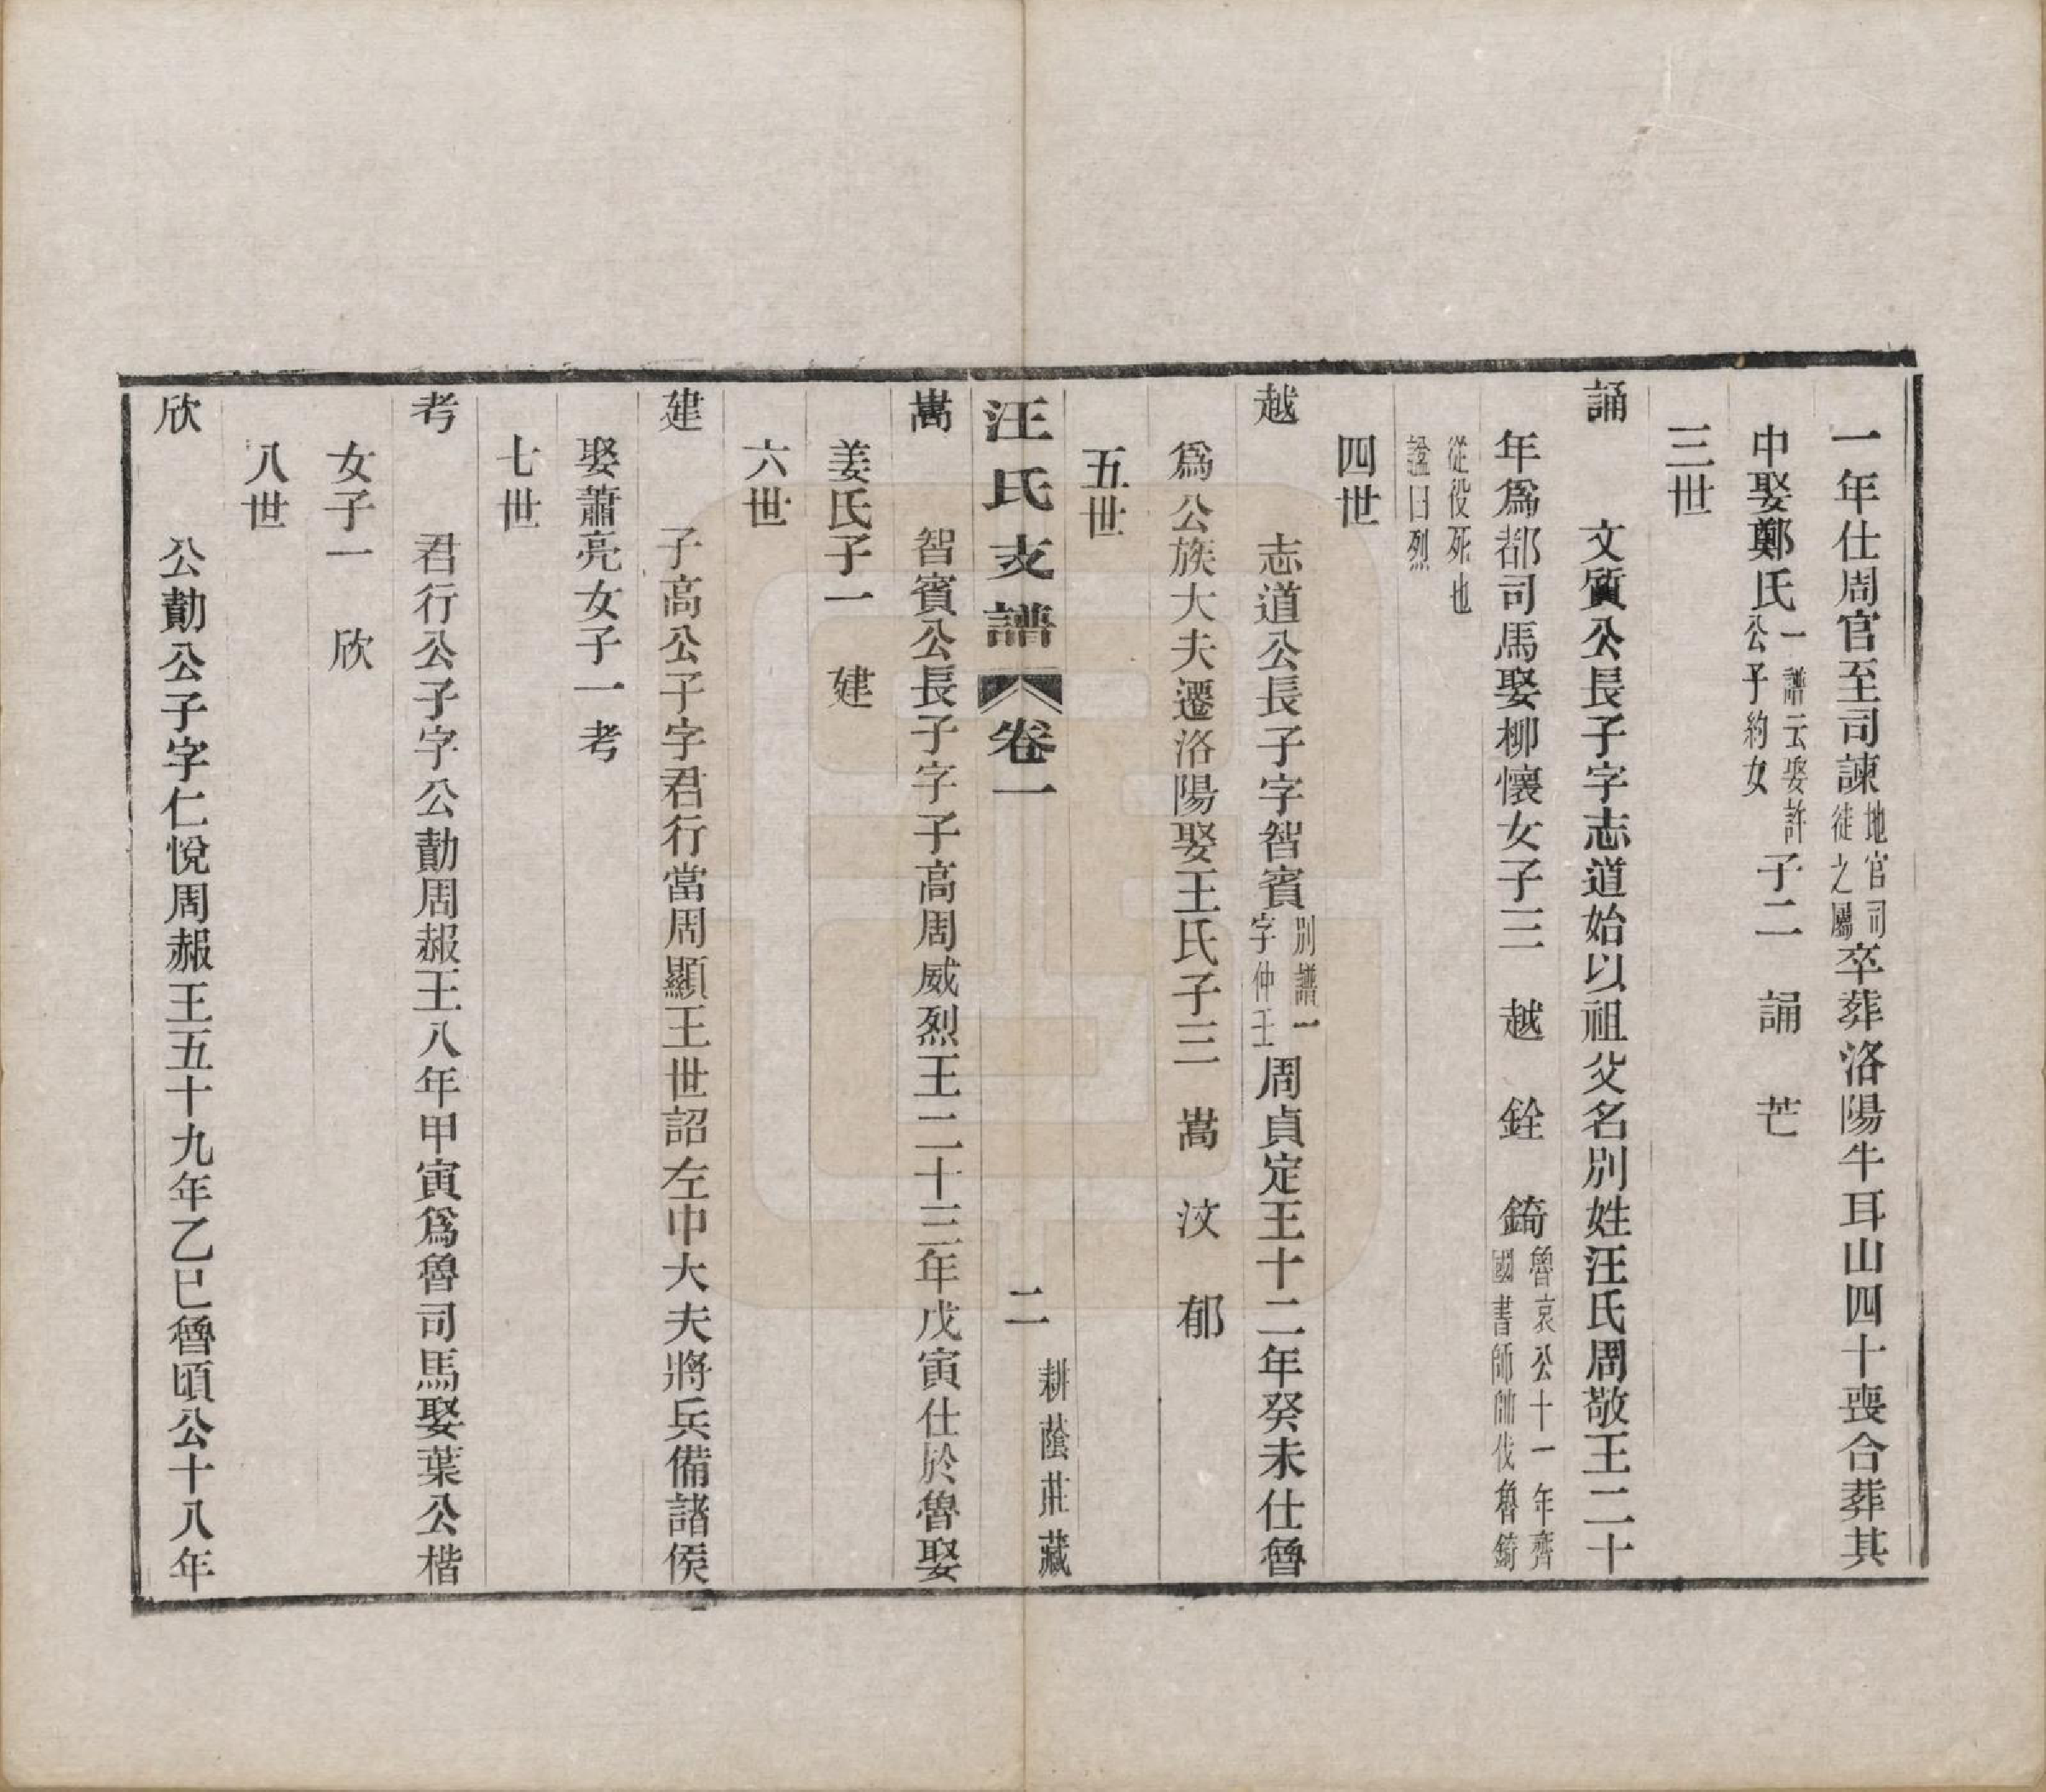 一年仕周官至司諫地官司徒之屬卒葬洛陽牛耳山四十喪合葬其
中娶鄭氏一譜云娶許公子約女子二　誦　芒
三世
誦　文質公長子字志道始以祖父名別姓汪氏周敬王二十
年爲都司馬娶柳懷女子三　越　銓　錡魯哀公十一年齊國書師帥伐魯錡
從役死也諡曰烈
四世
越　志道公長子字智賓別譜一字仲王周貞定王十二年癸未仕魯
爲公族大夫遷洛陽娶王氏子三　嵩　汶　郁
五世
汪氏支譜　卷一　二　耕蔭莊藏
嵩　智賓公長子字子高周威烈王二十三年戊寅仕於魯娶
姜氏子一　建
六世
建　子高公子字君行當周顯王世詔左巾大夫將兵備諸侯
娶蕭亮女子一　考
七世
考　君行公子字公勣周赧王八年甲寅爲魯司馬娶葉公楷
女子一　欣
八世
欣　公勣公子字仁悅周赧王五十九年乙巳魯頃公十八年